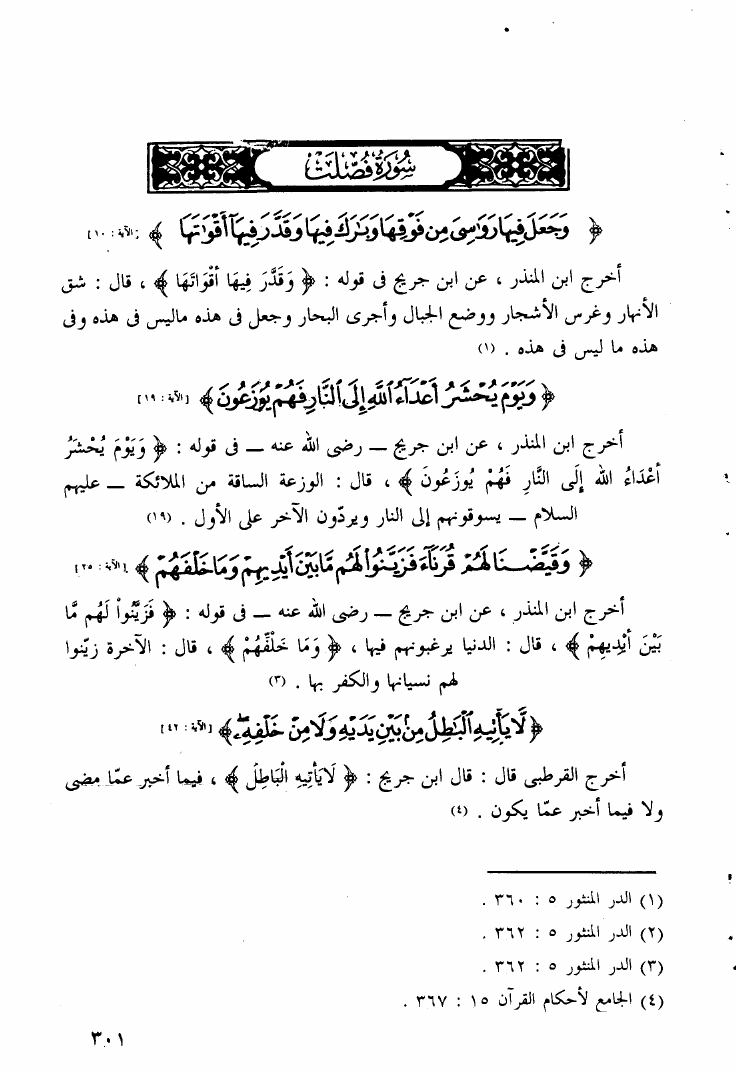 سُورَةُ فُصِّلَتْ
﴿ وَجَعَلَ فِيهَا رَوَاسِىَ مِن فَوْقِهَا وَبَارَكَ فِيهَا وَقَدَّرَ فِيهَآ أَقْوَاتَهَا ﴾ [الآية : ١٠]
أخرج ابن المنذر ، عن ابن جريج فى قوله : ﴿ وَقَدَّرَ فِيهَا أَقْوَاتَهَا ﴾ ، قال : شق
الأنهار وغرس الأشجار ووضع الجبال وأجرى البحار وجعل فى هذه ماليس فى هذه وفى
هذه ما ليس فى هذه . (١)
﴿ وَيَوْمَ يُحْشَرُ أَعْدَآءُ اللَّهِ إِلَى النَّارِ فَهُمْ يُوزَعُونَ ﴾ [الآية : ١٩]
أخرج ابن المنذر ، عن ابن جريج ــ رضى الله عنه ــ فى قوله : ﴿ وَيَوْمَ يُحْشَرُ
أَعْدَاءُ الله إِلَى النَّارِ فَهُمْ يُوزَعُونَ ﴾ ، قال : الوزعة الساقة من الملائكة ــ عليهم
السلام ــ يسوقونهم إلى النار ويردّون الآخر على الأول . (١٩)
﴿ وَقَيَّضْنَا لَهُمْ قُرَنَآءَ فَزَيَّنُوا لَهُم مَّا بَيْنَ أَيْدِيهِمْ وَمَا خَلْفَهُمْ ﴾ [الآية : ٢٥]
أخرج ابن المنذر ، عن ابن جريج ــ رضى الله عنه ــ فى قوله : ﴿ فَزَيَّنُواْ لَهُم مَّا
بَيْنَ أَيْدِيهِمْ ﴾ ، قال : الدنيا يرغبونهم فيها ، ﴿ وَمَا خَلْفَهُمْ ﴾ ، قال : الآخرة زيّنوا
لهم نسيانها والكفر بها . (٣)
﴿ لَّا يَأْتِيهِ الْبَاطِلُ مِنۢ بَيْنِ يَدَيْهِ وَلَا مِنْ خَلْفِهِۦ ﴾ [الآية : ٤٢]
أخرج القرطبى قال : قال ابن جريج : ﴿ لَايَأْتِيهِ الْبَاطِلُ ﴾ ، فيما أخبر عمّا مضى
ولا فيما أخبر عمّا يكون . (٤)
(١) الدر المنثور ٥ : ٣٦٠ .
(٢) الدر المنثور ٥ : ٣٦٢ .
(٣) الدر المنثور ٥ : ٣٦٢ .
(٤) الجامع لأحكام القرآن ١٥ : ٣٦٧ .
٣٠١